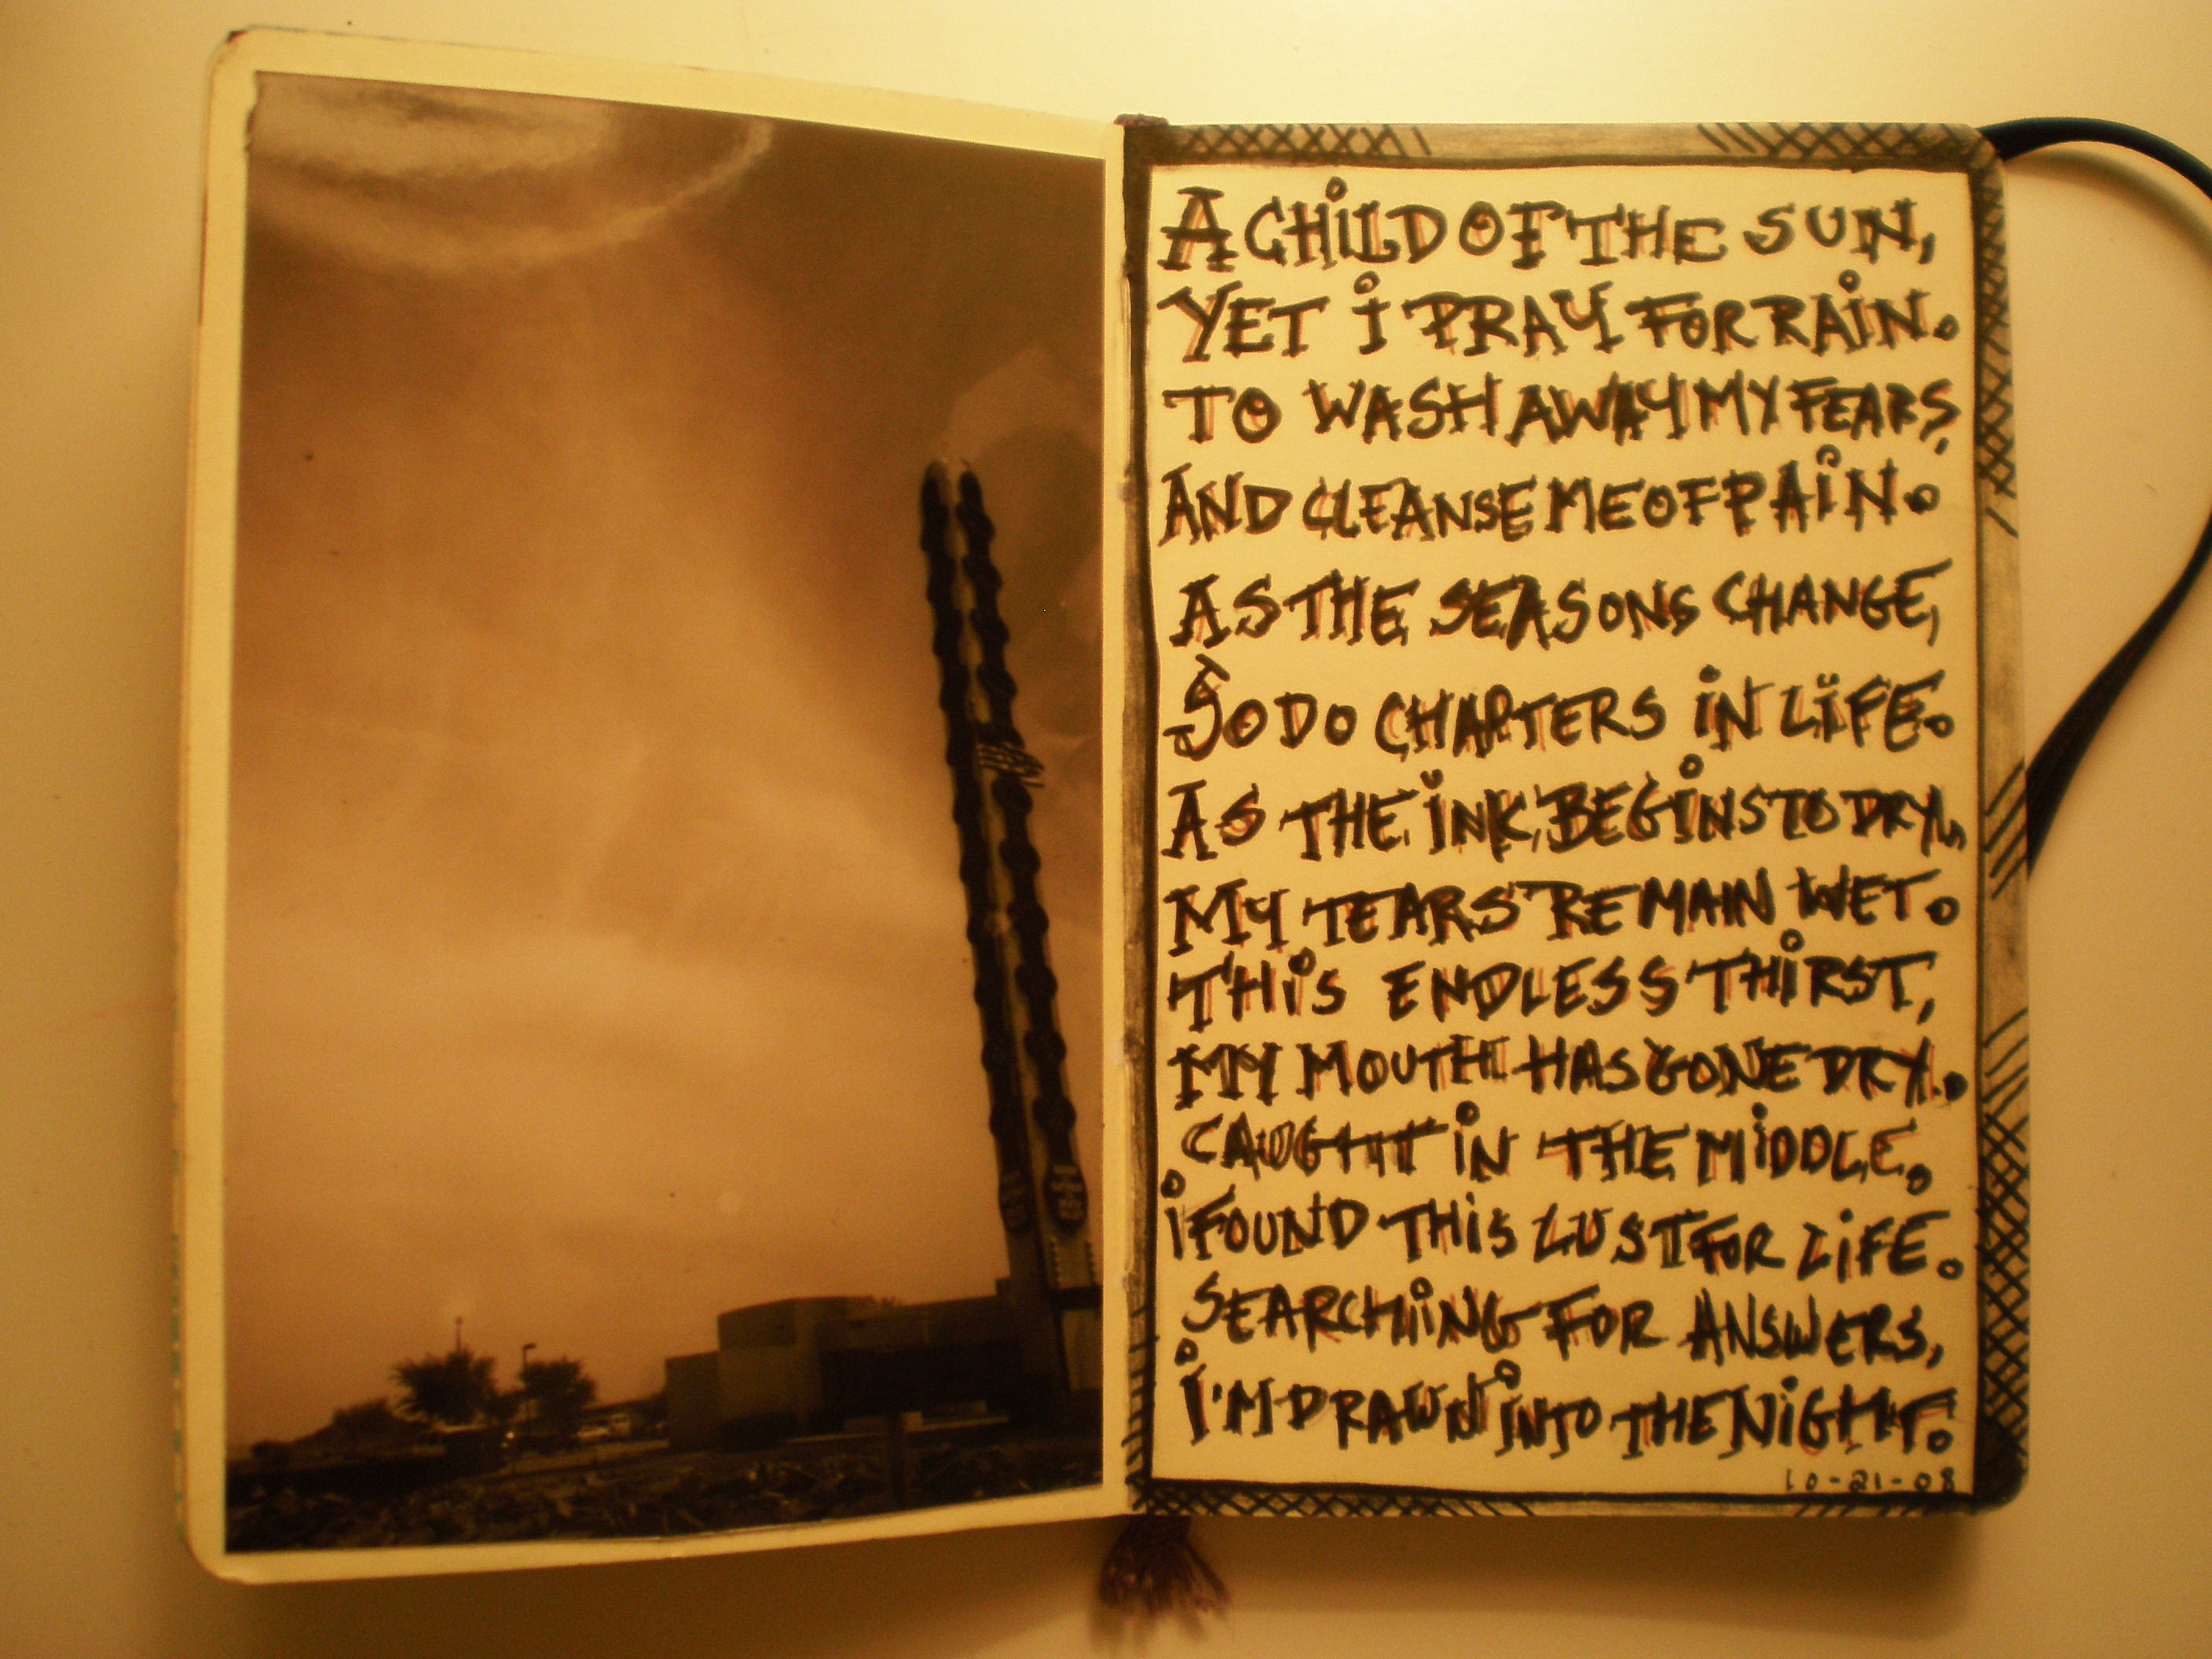 A CHiLD OF THE SUN,
YET i PRAY FOR RAiN.
TO WASH AWAY MY FEARS,
AND CLEANSE ME OF PAiN.
AS THE SEASONS CHANGE,
SO DO CHAPTERS iN LiFE.
AS THE iNK BEGiNS TO DRY,
MY TEARS REMAIN WET.
THiS ENDLESS THiRST,
MY MOUTH HAS GONE DRY.
CAUGHT iN THE MiDDLE.
i FOUND THiS LUST FOR LiFE.
SEARCHiNG FOR ANSWERS,
i'M DRAWN iNTO THE NiGHT.
10-21-08